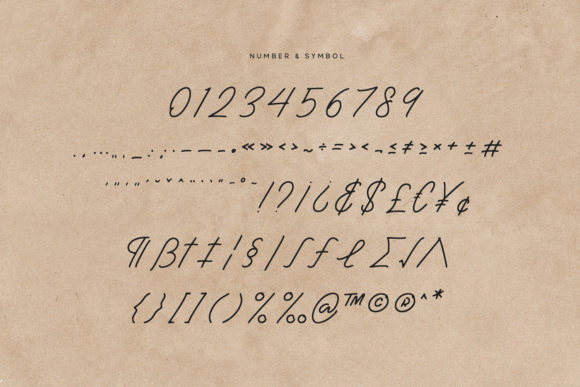 NUMBER & SYMBOL
0123456789
«»<>~÷=>‹¬≤≠≥×+±#
!?¡¿₡$£€¥¢
¶β†‡¦§|∫ƒℓ∑√Λ
{}[]()%‰@™©®^*